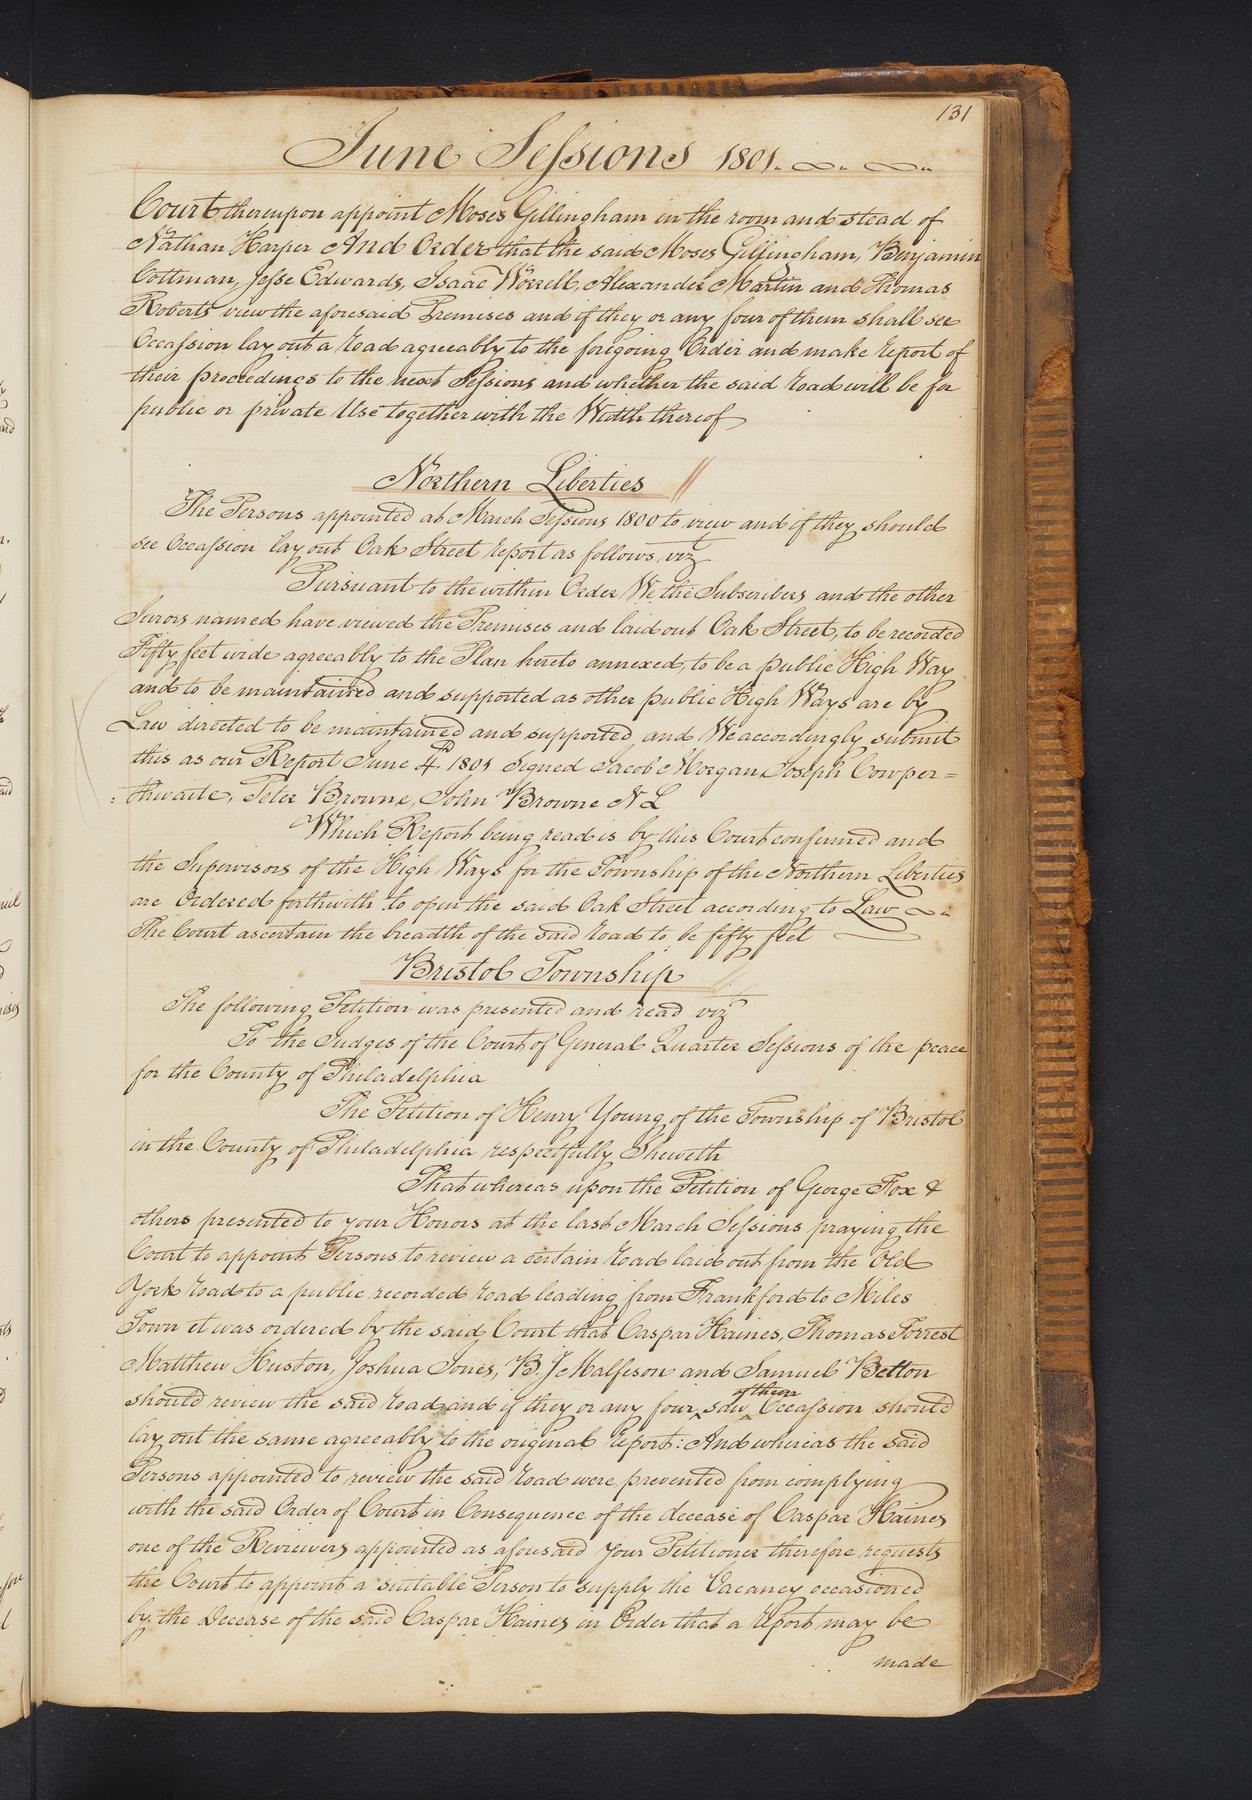 131
June Sessions 1801.
Court thereupon appoint Moses Gillingham in the room and stead of
Nathan Harper And Order that the said Moses Gillingham, Benjamin
Cottman, Jesse Edwards, Isaac Worrell, Alexander Martin and Thomas
Roberts view the aforesaid Premises and if they or any four of them shall see
Occassion lay out a road agreeably to the foregoing Order and make report of
their proceedings to the next Sessions and whether the said road will be for
public or private Use together with the Width thereof
Northern Liberties
The Persons appointed at March Sessions 1800 to view and if they should
see Occassion lay out Oak Street report as follows, viz
Pursuant to the within Order We the Subscribers and the other
Jurors named have viewed the Premises and laid out Oak Street, to be recorded
Fifty feet wide agreeably to the Plan hereto annexed, to be a public High Way
and to be maintained and supported as other public High Ways are by
Law directed to be maintained and supported and We accordingly submit
this as our Report June 4th 1801 Signed Jacob Morgan, Joseph Cowper=
:thwaite, Peter Browne, John Browne N L
Which Report being read is by this Court confirmed and
the Supervisors of the High Ways for the Township of the Northern Liberties
are Ordered forthwith to open the said Oak Street according to Law
The Court ascertain the breadth of the said road to be fifty feet
Bristol Township
The following Petition was presented and read viz
To the Judges of the Court of General Quarter Sessions of the peace
for the County of Philadelphia
The Petition of Henry Young of the Township of Bristol
in the County of Philadelphia respectfully Sheweth
That whereas upon the Petition of George Fox &
others presented to your Honors at the last March Sessions praying the
Court to appoint Persons to review a certain road laid out from the Old
York road to a public recorded road leading from Frankford to Miles
Town it was ordered by the said Court that Caspar Haines, Thomas Forrest
Matthew Huston, Joshua Jones, B. J. and Samuel Betton
should review the said road and if they or any four of them saw Occassion should
lay out the same agreeably to the original report: And whereas the said
Persons appointed to review the said road were prevented from complying
with the said Order of Court in Consequence of the decease of Caspar Haines
one of the Reviewers appointed as aforesaid your Petitioner therefore requests
the Court to appoint a suitable Person to supply the Vacancy occasioned
by the Decease of the said Caspar Haines in Order that a report may be
made